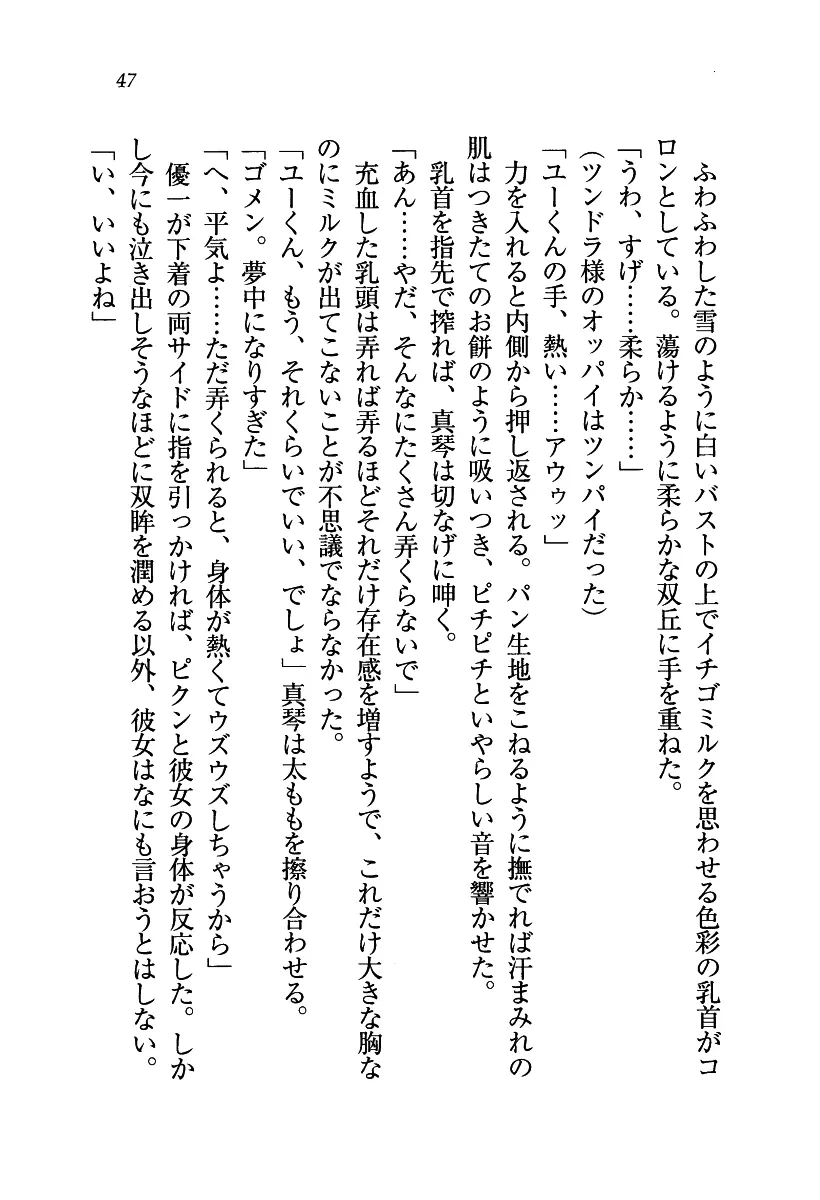 47
ふわふわした雪のように白いバストの上でイチゴミルクを思わせる色彩の乳首がコ
ロンとしている。蕩けるように柔らかな双丘に手を重ねた。
「うわ、すげ……柔らか……」
（ツンドラ様のオッパイはツンパイだった）
「ユーくんの手、熱い……アウゥッ」
力を入れると内側から押し返される。パン生地をこねるように撫でれば汗まみれの
肌はつきたてのお餅のように吸いつき、ピチピチといやらしい音を響かせた。
乳首を指先で搾れば、真琴は切なげに呻く。
「あん……やだ、そんなにたくさん弄くらないで」
充血した乳頭は弄れば弄るほどそれだけ存在感を増すようで、これだけ大きな胸な
のにミルクが出てこないことが不思議でならなかった。
「ユーくん、もう、それくらいでいい、でしょ」真琴は太ももを擦り合わせる。
「ゴメン。夢中になりすぎた」
「へ、平気よ……ただ弄くられると、身体が熱くてウズウズしちゃうから」
優一が下着の両サイドに指を引っかければ、ピクンと彼女の身体が反応した。しか
し今にも泣き出しそうなほどに双眸を潤める以外、彼女はなにも言おうとはしない。
「い、いいよね」